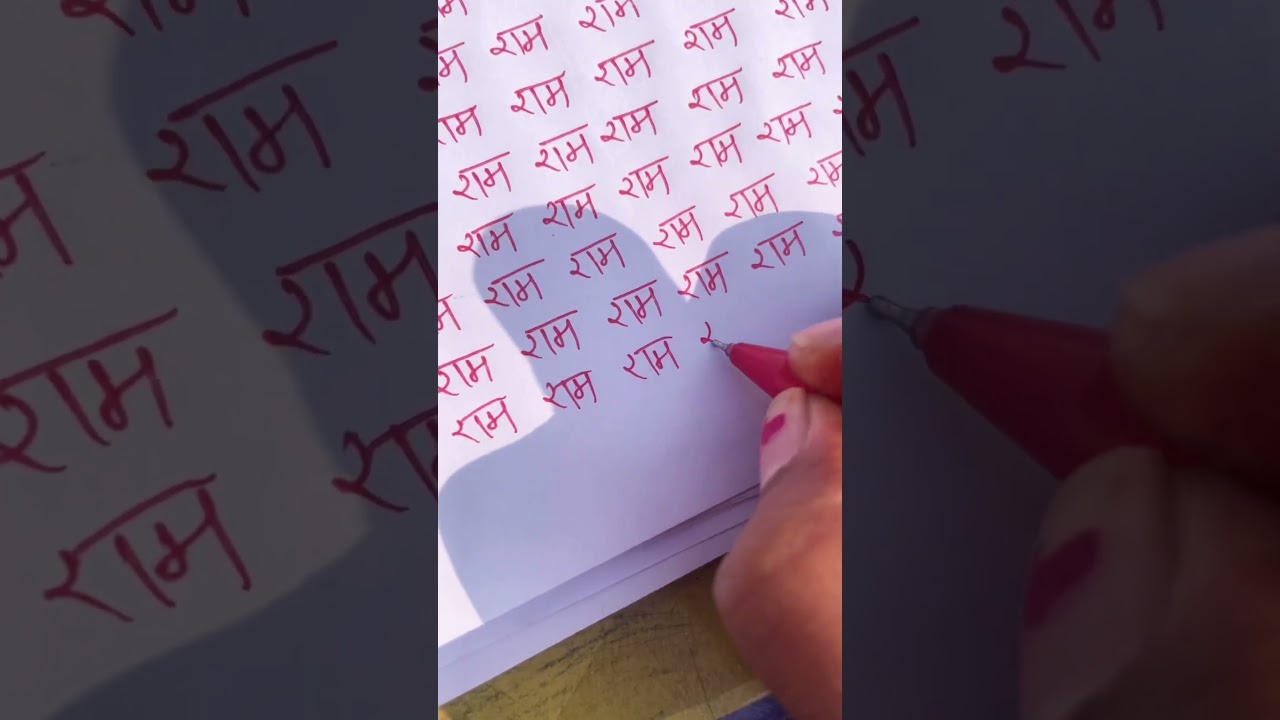 म राम राम
राम राम राम राम राम
राम राम राम राम राम
राम राम राम राम राम
म राम राम राम राम राम
राम राम राम राम राम
राम राम राम र